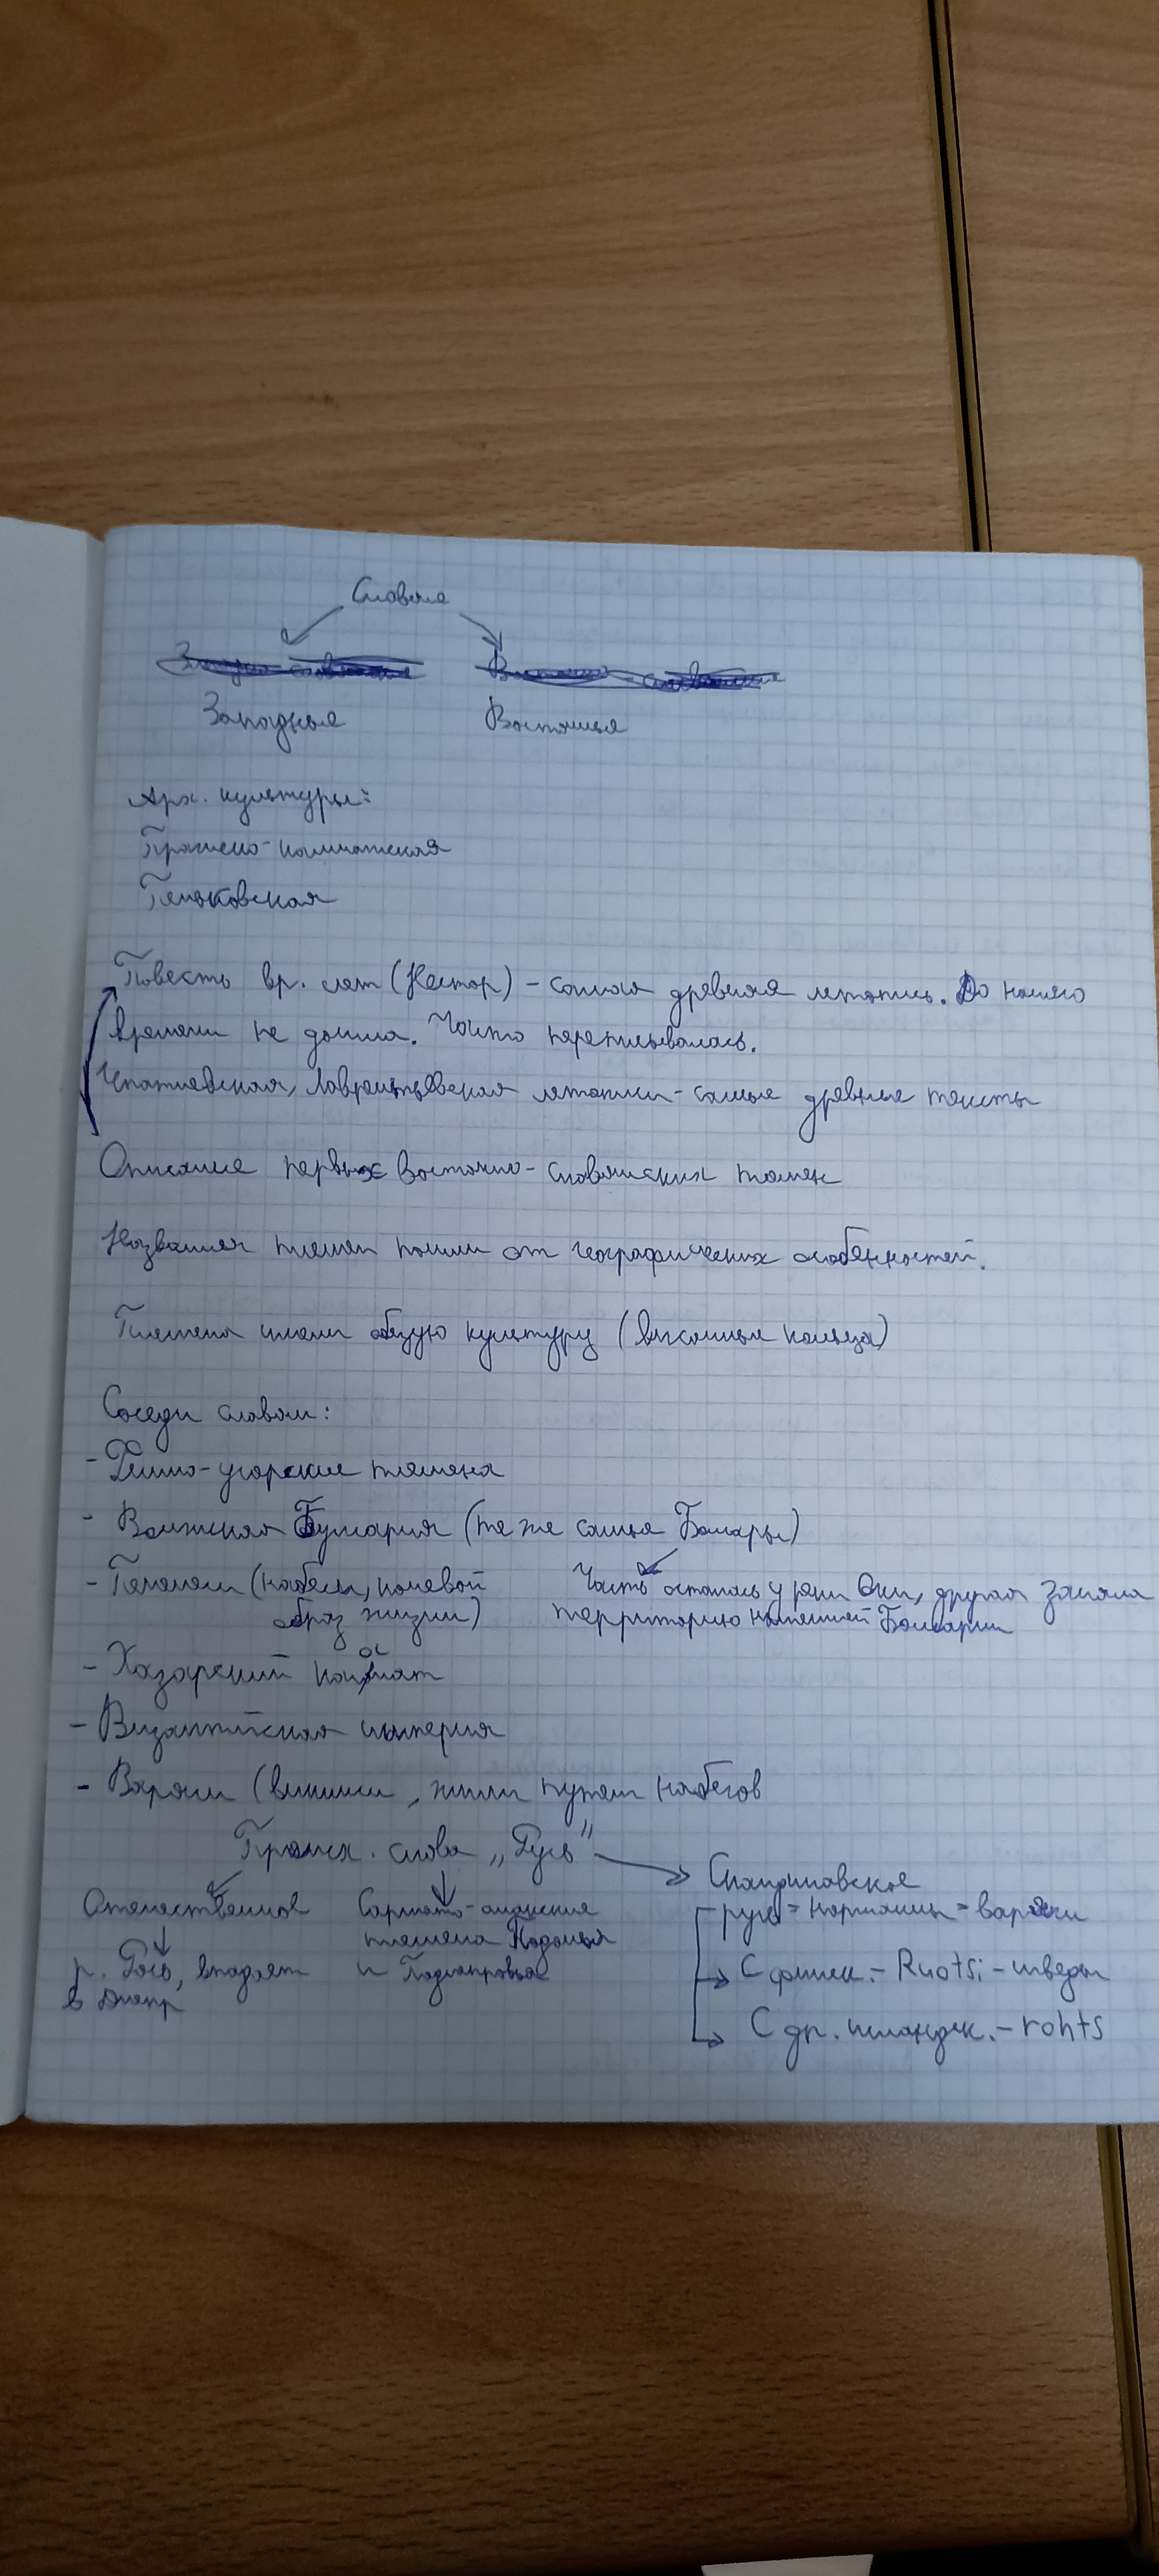 Славяне
Западные Восточные
Арх. культуры:
Пражско-корчакская
Пеньковская
Повесть вр. лет (Нестор) - самая древняя летопись. До нашего
времени не дошла. Часто переписывалась.
Ипатьевская, Лаврентьевская летописи - самые древние тексты
Описание первых восточно-славянских племен
Названия племен пошли от географических особенностей.
Племена имели общую культуру (височные кольца)
Соседи славян:
- Финно-угорские племена
- Волжская Булгария (те же самые Болгары)
- Печенеги (набеги, кочевой Часть осталась у реки Оки, другая заняла
образ жизни) территорию нынешней Болгарии
- Хазарский каганат
- Византийская империя
- Варяги (викинги, жили путем набегов
Происх. слова „Русь"
Отечественное Сармато-аланские Скандинавское
племена Подонья русь = норманны = варяги
р. Рось, впадает и Поднепровья С финск. - Ruotsi - шведы
в Днепр
С др. исландск. - rohts